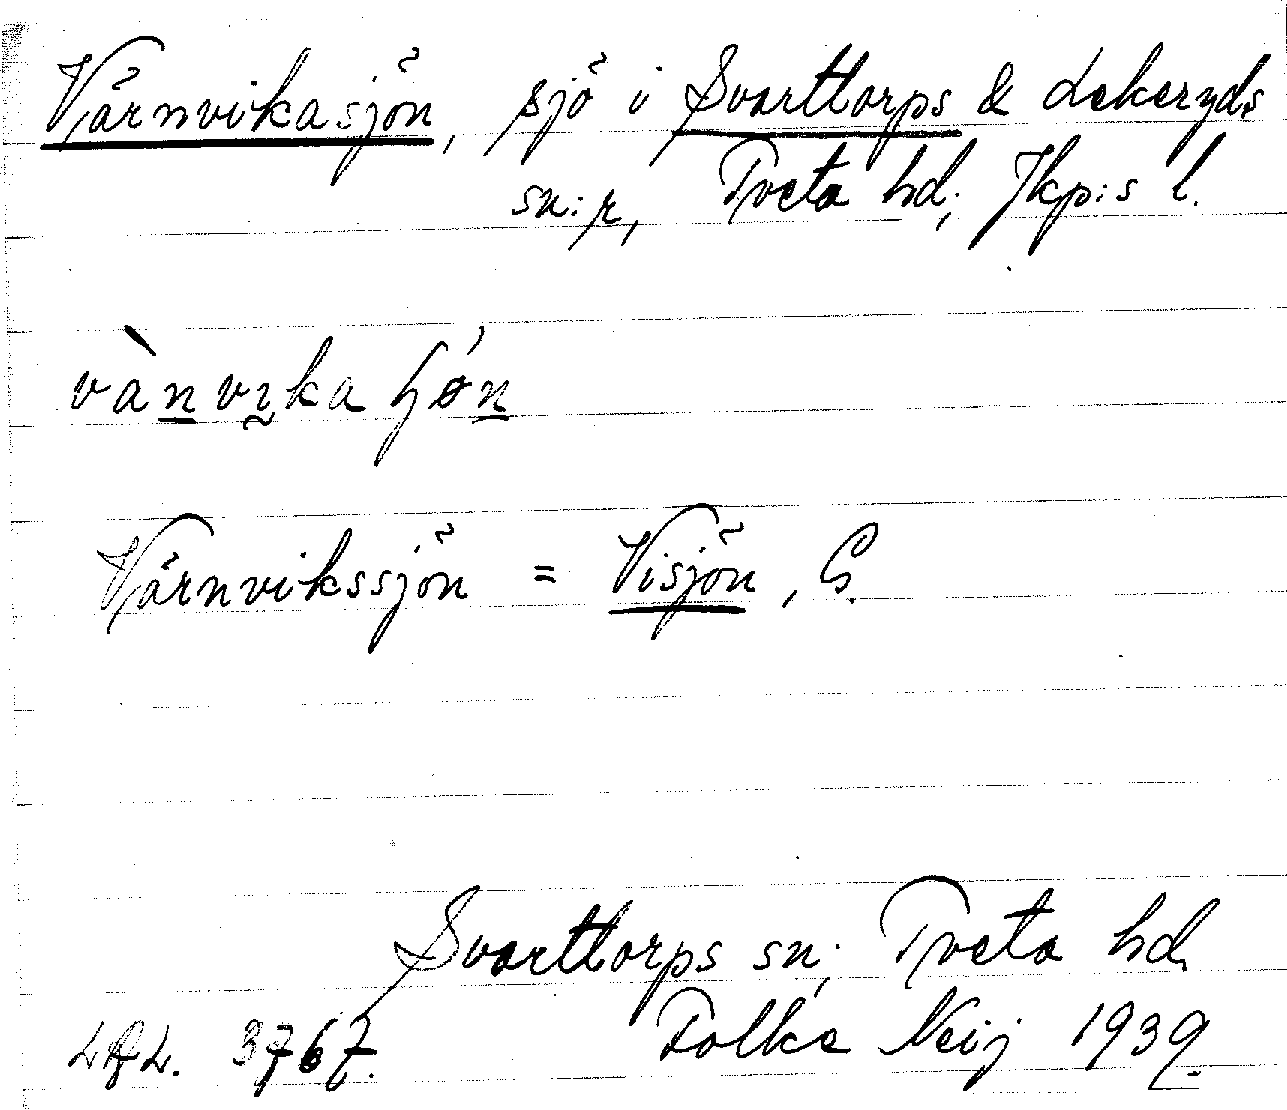 Värnvikasjön, sjö i Svarttorps & Lekeryds
sn:r, Tveta hd, Jkp:s l.
vànvıka ɧǿn
Värnvikssjön = Visjön, G.
Svarttorps sn, Tveta hd.
Folke Neij 1939.
3767.